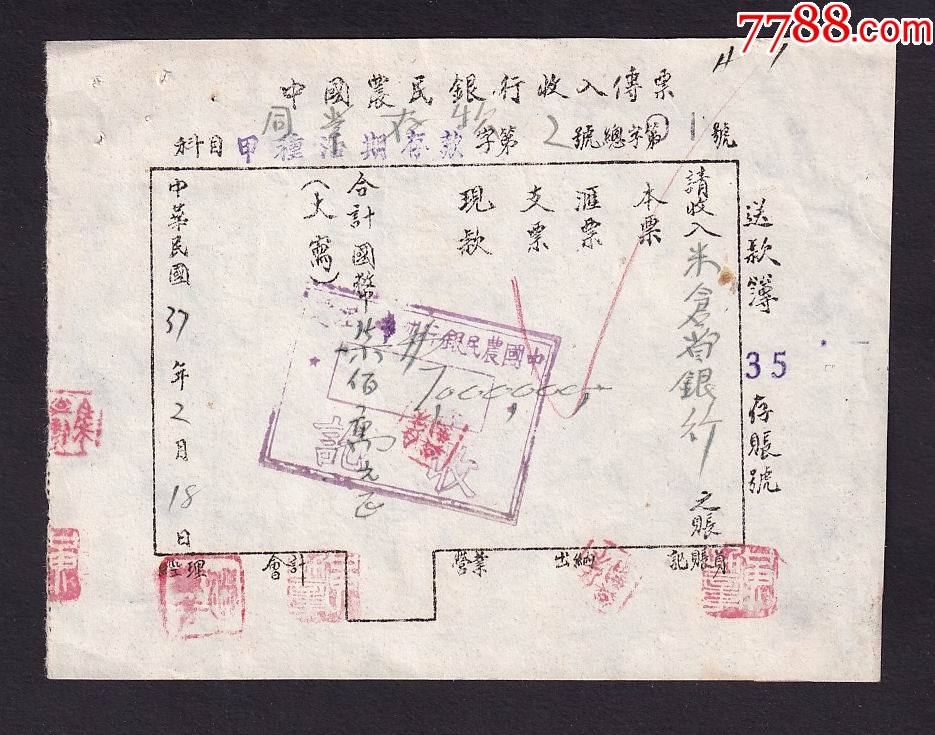 7788.com
中國農民銀行收入傳票
同業存
科目 甲種活期存款 字第 2 號總字第 1 號
送款簿 35 存賬號
請收入米倉省銀行之賬
本票
滙票
支票
現款
合計國幣柒佰萬元正
(大寫)
7,000,000
中國農民銀
收
記
中華民國 37 年 2 月 18 日
經理 會計 營業 出納 記賬員